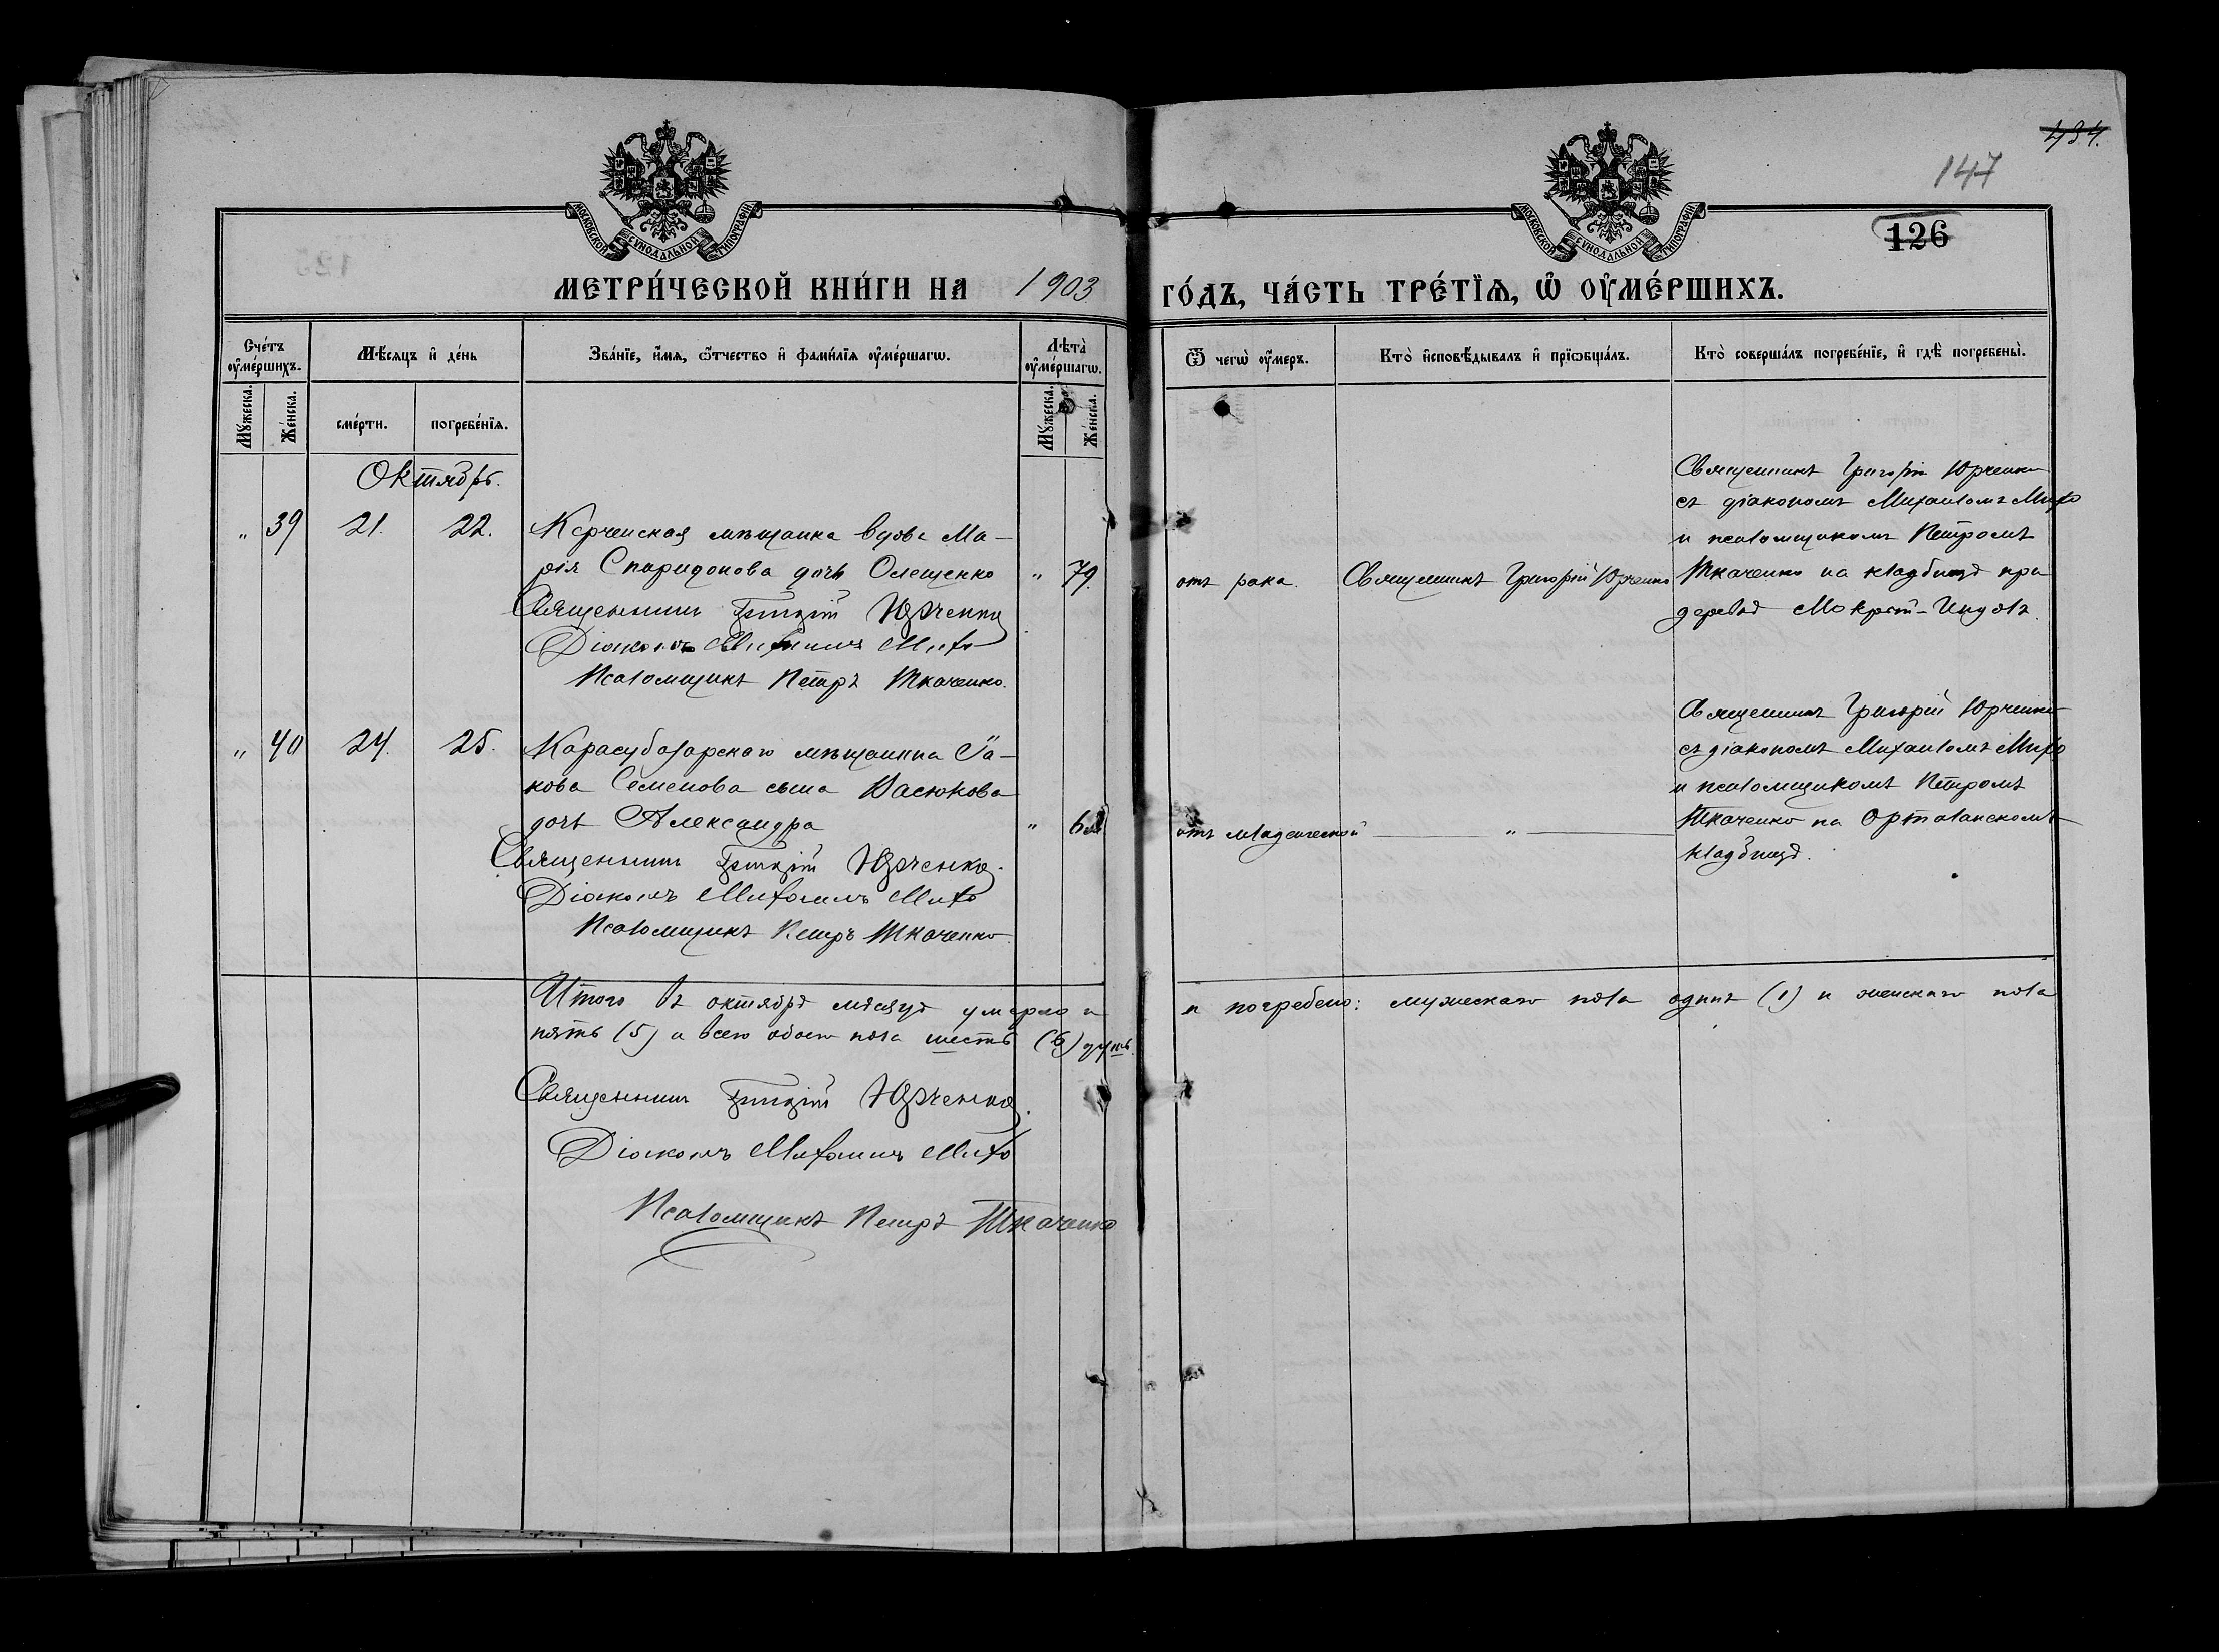 434.
147
126
МОСКОВСКОЙ СѴНОДАЛЬНОЙ ТИПОГРАФІИ
МОСКОВСКОЙ СѴНОДАЛЬНОЙ ТИПОГРАФІИ
МЕТРИ́ЧЕСКОЙ КНИ́ГИ НА 1903 ГО́ДЪ, ЧА́СТЬ ТРЕ́ТЇѦ, Ѡ҆ ОУ҆МЕ́РШИХЪ.
Сче́тъ оу҆ме́ршихъ.
Мѣ́сяцъ и҆ де́нь
Зва́нїе, и҆́мѧ, ѻ҆́тчество и҆ фами́лїѧ оу҆ме́ршагѡ.
Лѣта̀ оу҆ме́ршагѡ.
Ѿ чегѡ̀ оу҆́меръ.
Кто̀ и҆сповѣ́дывалъ и҆ прїѡбща́лъ.
Кто̀ соверша́лъ погребе́нїе, и҆ гдѣ̀ погребены̀.
Мꙋ́жеска.
Же́нска.
сме́рти.
погребе́нїѧ.
Мꙋ́жеска.
Же́нска.
Октябрь.
„ 39 21. 22. Керченская мѣщанка вдова Ма-
рія Спиридонова дочь Олещенко „ 79.
Священникъ Григорій Юрченко
Діаконъ Михаилъ Михо
Псаломщикъ Петръ Ткаченко.
отъ рака. Священникъ Григорій Юрченко
Священникъ Григорій Юрченко
съ діакономъ Михаиломъ Михо
и псаломщикомъ Петромъ
Ткаченко на кладбищѣ при
деревнѣ Мокрый-Индолъ.
„ 40 24. 25. Карасубазарскаго мѣщанина Іа-
кова Семенова сына Васюкова
дочь Александра „ 6
Священникъ Григорій Юрченко.
Діаконъ Михаилъ Михо
Псаломщикъ Петръ Ткаченко.
отъ младенческой „
Священникъ Григорій Юрченко
съ діакономъ Михаиломъ Михо
и псаломщикомъ Петромъ
Ткаченко на Орталанскомъ
кладбищѣ.
Итого въ октябрѣ мѣсяцѣ умерло и и погребено: мужескаго пола одинъ (1) и женскаго пола
пять (5) а всего обоего пола шесть (6) душъ.
Священникъ Григорій Юрченко.
Діаконъ Михаилъ Михо
Псаломщикъ Петръ Ткаченко